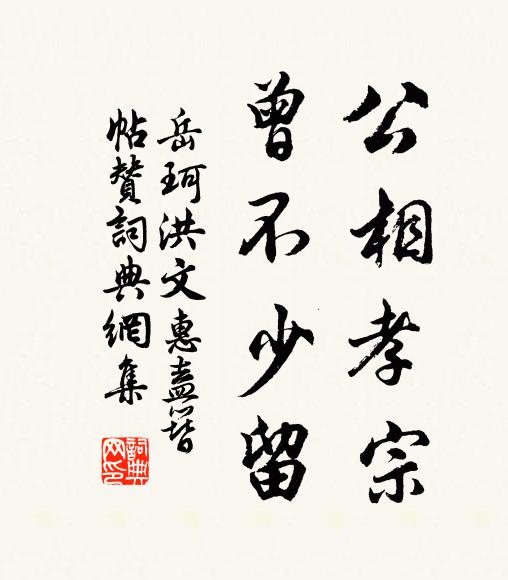 公相孝宗
曾不少留
岳珂洪文惠盍簪
帖贊詞典網集
詞典网印